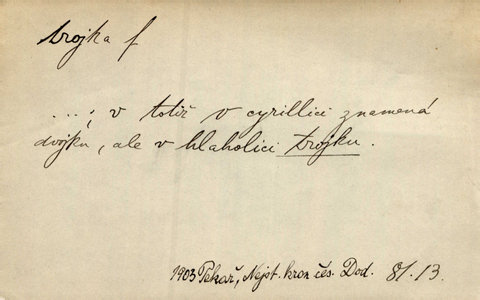 trojka f
...; v totiž v cyrillici znamená
dvojku, ale v hlaholici trojku.
1903 Pekař, Nejst. kron. čes. Dod. 81.13.